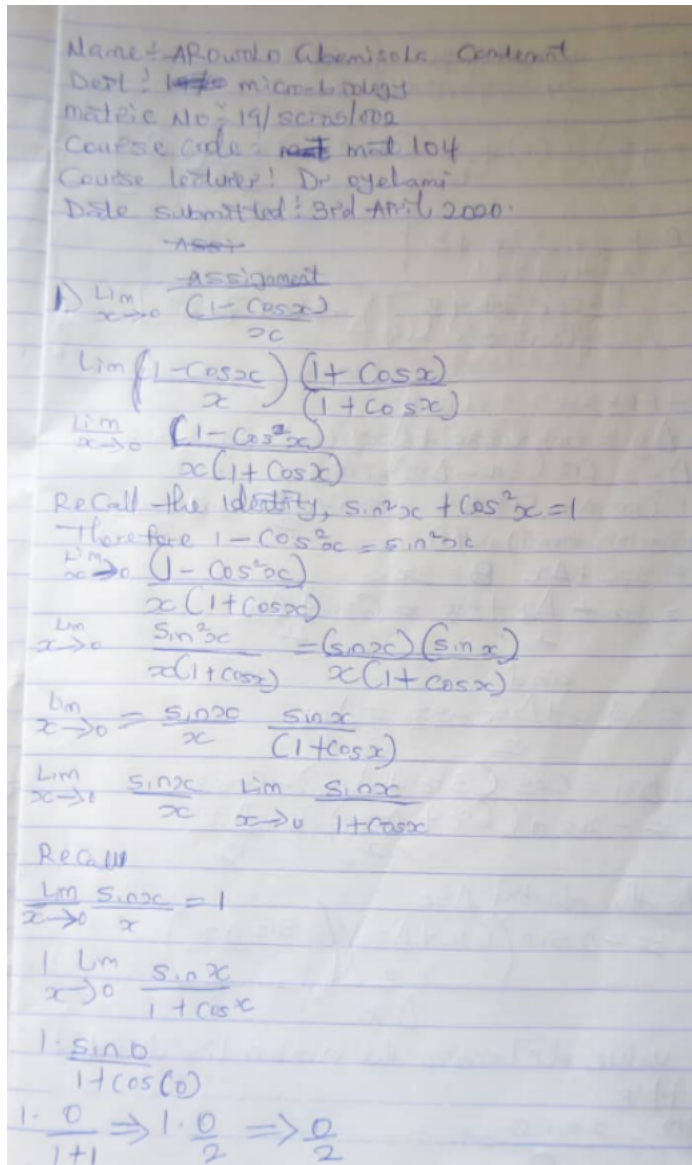 Name:- AROWOLO Gbemisola
Dept: micro-biology
matric No:- 19/SCI05/002
Course code: mat 104
Course lecturer: Dr oyelami
Date submitted: 3rd April, 2020.
Assi
Assignment
1) Lim x→0 (1 - Cosx) / x
Lim (1 - Cosx / x) (1 + Cosx) / (1 + Cosx)
Lim x→0 (1 - Cos²x) / x(1 + Cosx)
Recall the identity, sin²x + cos²x = 1
Therefore 1 - Cos²x = sin²x
Lim x→0 (1 - Cos²x) / x(1 + Cosx)
Lim x→0 Sin²x / x(1 + cosx) = (sinx)(sinx) / x(1 + cosx)
Lim x→0 = sinx / x sinx / (1 + cosx)
Lim x→0 sinx / x Lim x→0 sinx / 1 + cosx
Recall
Lim x→0 sinx / x = 1
1 Lim x→0 sinx / 1 + cosx
1 · sin0 / 1 + cos(0)
1 · 0 / 1+1 ⇒ 1 · 0 / 2 ⇒ 0 / 2